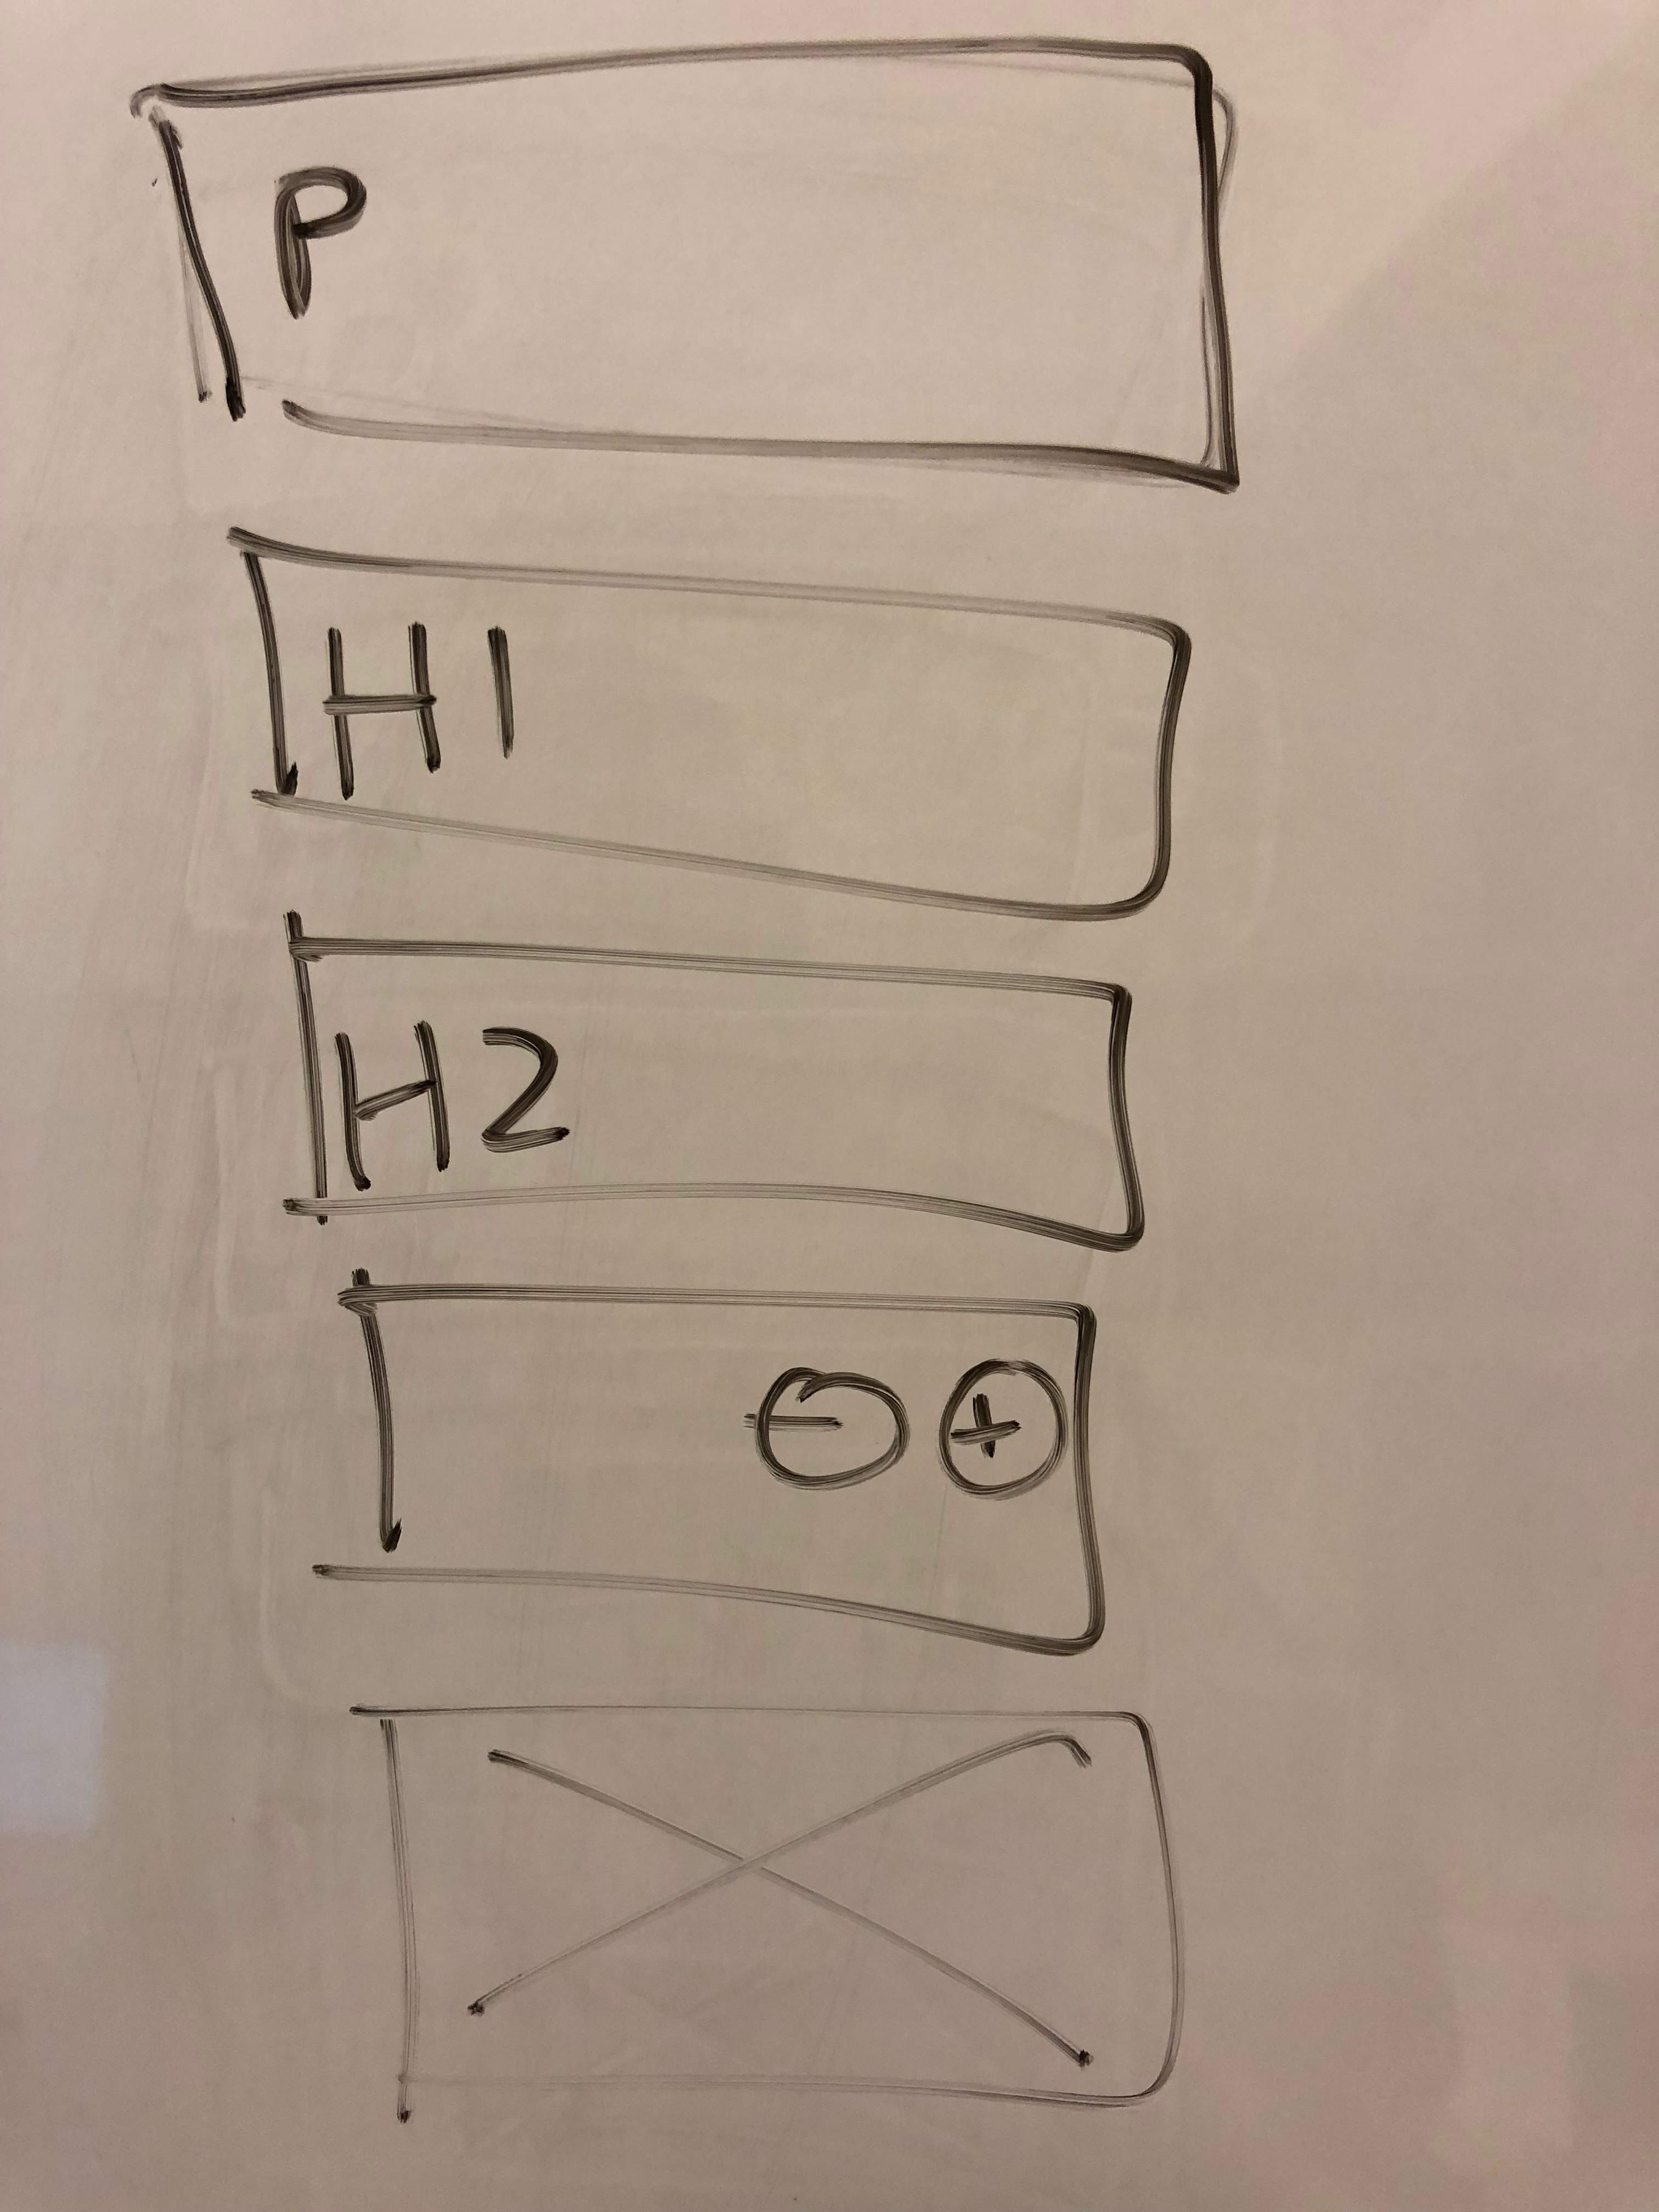 P
H1
H2
- +